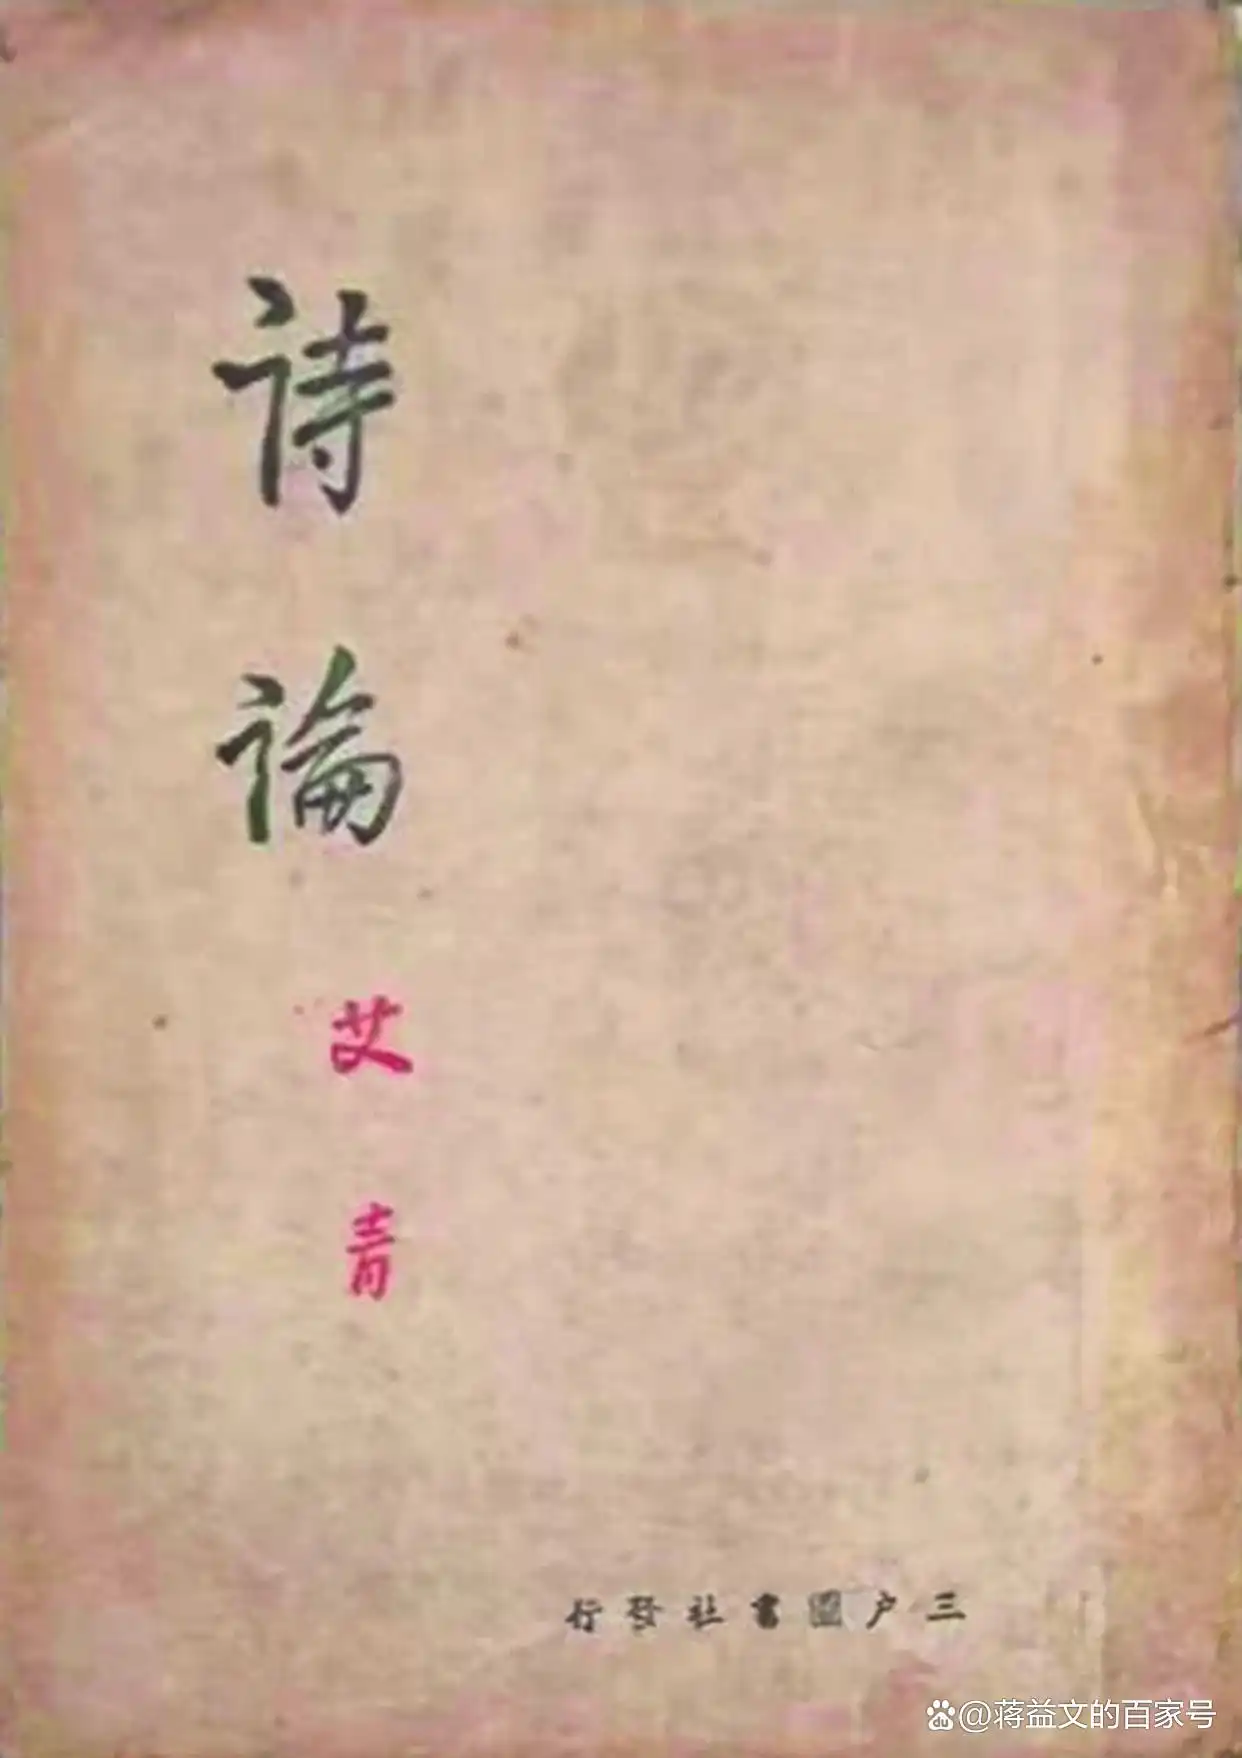 詩論
艾青
三户圖書社發行
@蒋益文的百家号